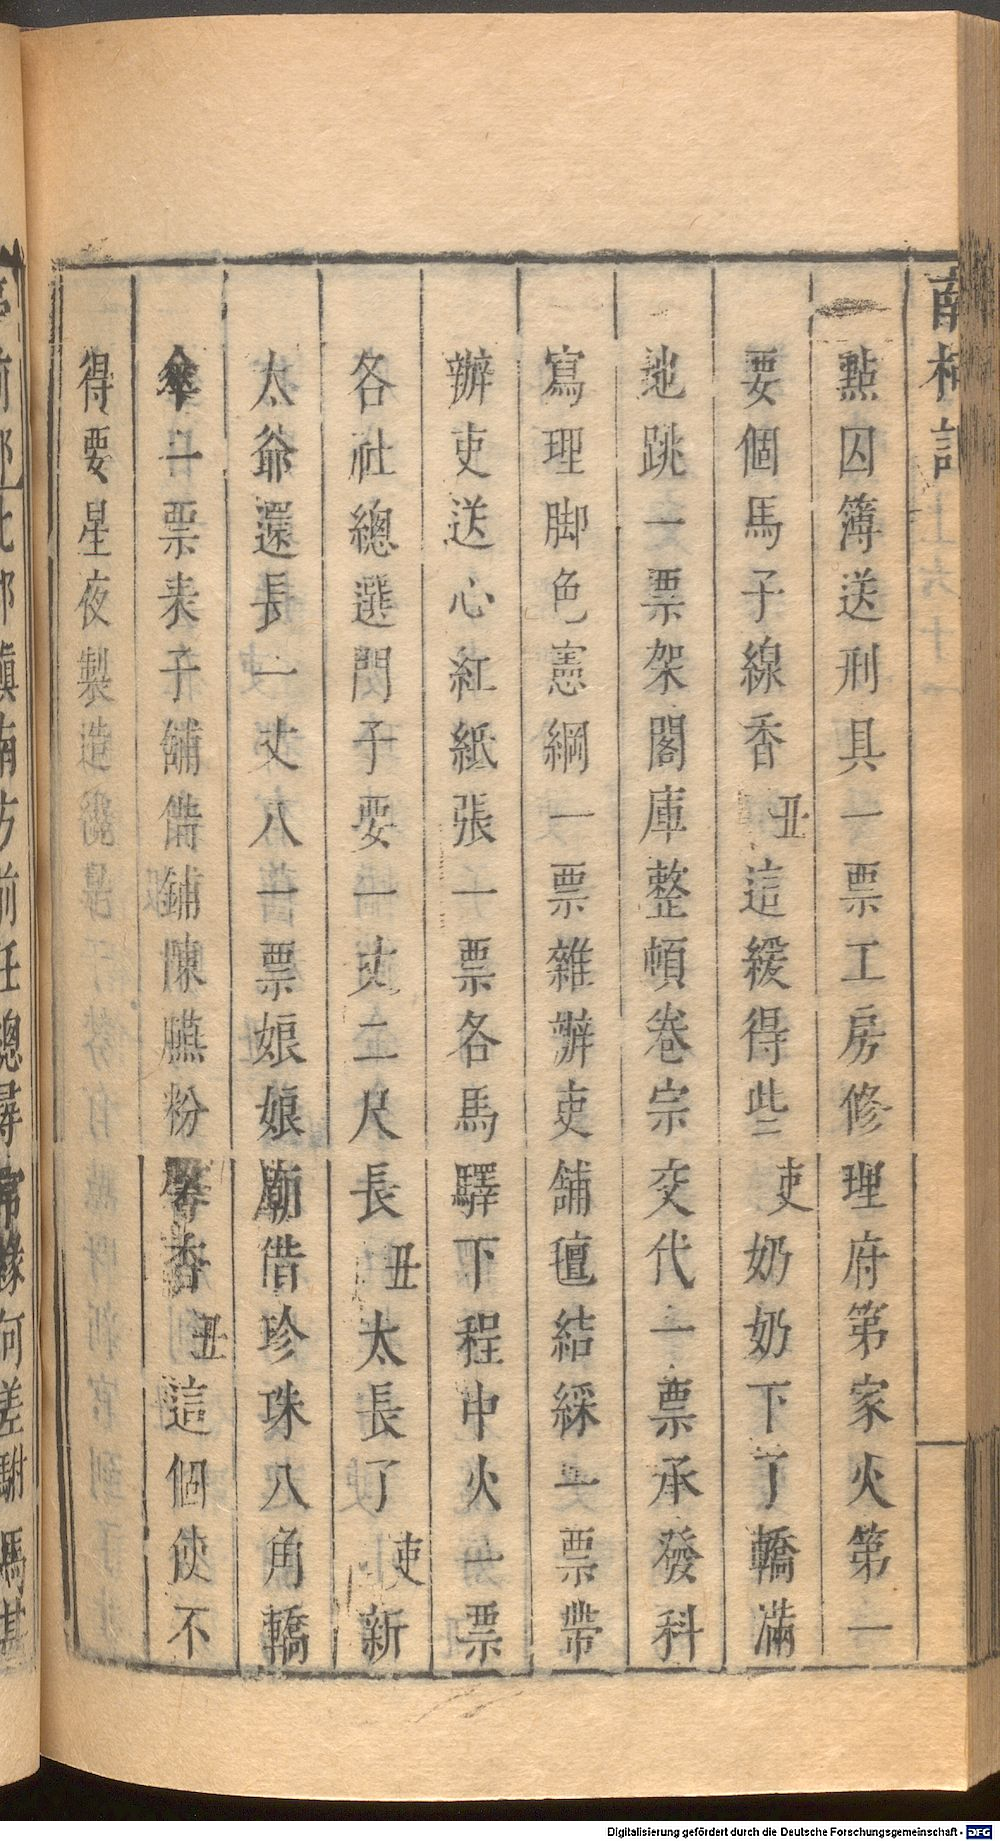 南柯記
點囚簿送刑具一票工房修理府第家火第一
要個馬子線香丑這緩得些吏奶奶下了轎滿
地跳一票架閣庫整頓卷宗交代一票承發科
寫理脚色憲綱一票雜辦吏舖氊結綵一票帶
辦吏送心紅紙張一票各馬驛下程中火一票
各社總選門子要一丈二尺長丑太長了吏新
太爺還長一丈八一票娘娘廟借珍珠八角轎
傘一票表子舖借鋪陳臙粉馨香丑這個使不
得要星夜製造
南方前任總尋常緣何差駙馬其
Digitalisierung gefördert durch die Deutsche Forschungsgemeinschaft - DFG